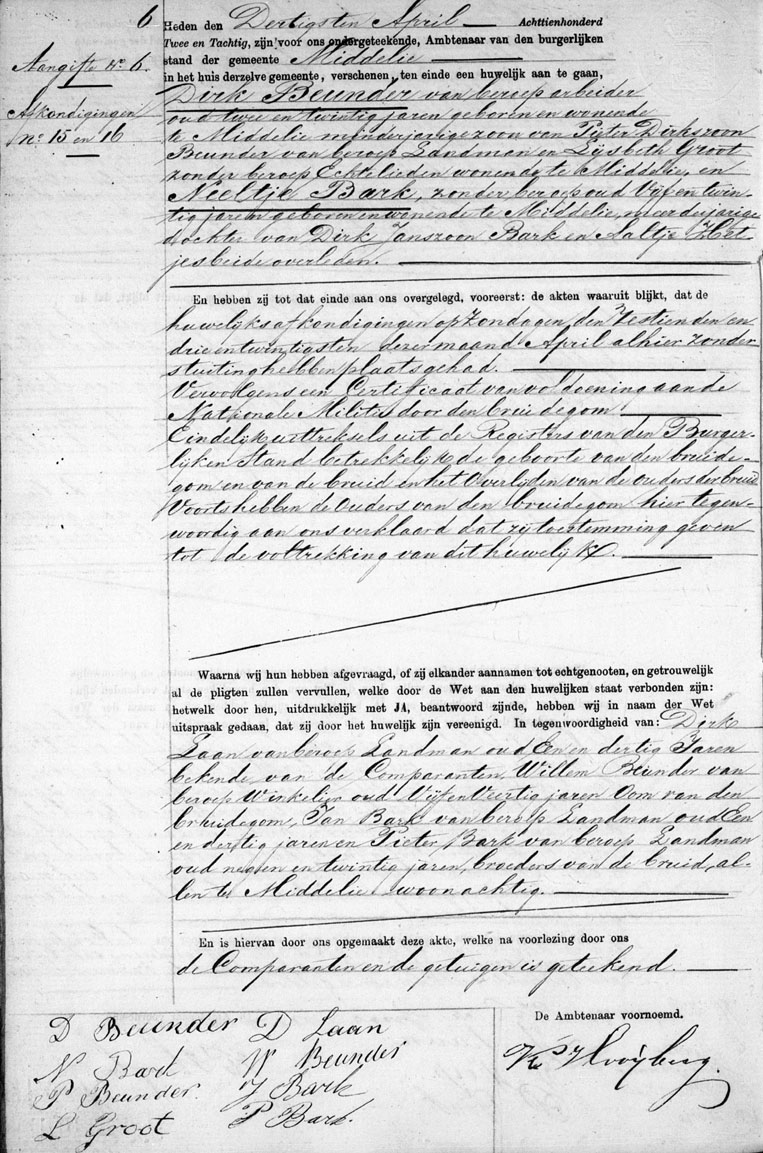 6
Aangifte No. 6.
Afkondigingen
No. 15 en 16
Heden den Dertigsten April Achttienhonderd
Twee en Tachtig, zijn voor ons ondergeteekende, Ambtenaar van den burgerlijken
stand der gemeente Middelie
in het huis derzelve gemeente, verschenen, ten einde een huwelijk aan te gaan,
Dirk Beunder van beroep arbeider
oud twee en twintig jaren geboren en wonende
te Middelie minderjarige zoon van Pieter Dirkszoon
Beunder van beroep Landman en Lijsbeth Groot
zonder beroep Echtelieden wonende te Middelie, en
Neeltje Bark, zonder beroep oud Vijf en twin
tig jaren geboren en wonende te Middelie, meerderjarige
dochter van Dirk Janszoon Bark en Aaltje Het
jes beide overleden.
En hebben zij tot dat einde aan ons overgelegd, vooreerst: de akten waaruit blijkt, dat de
huwelijksafkondigingen op Zondagen den Zestienden en
drie en twintigsten dezer maand April alhier zonder
stuiting hebben plaats gehad.
Vervolgens een Certificaat van voldoening aan de
Nationale Militie door den bruidegom!
Eindelijk uittreksels uit de Registers van den Burger-
lijken Stand betrekkelijk de geboorte van den bruide-
gom en van de bruid en het Overlijden van de ouders der bruid
Voorts hebben de Ouders van den bruidegom hier tegen-
woordig aan ons verklaard dat zij toestemming geven
tot de voltrekking van dit huwelijk.
Waarna wij hun hebben afgevraagd, of zij elkander aannamen tot echtgenooten, en getrouwelijk
al de pligten zullen vervullen, welke door de Wet aan den huwelijken staat verbonden zijn:
hetwelk door hen, uitdrukkelijk met JA, beantwoord zijnde, hebben wij in naam der Wet
uitspraak gedaan, dat zij door het huwelijk zijn vereenigd. In tegenwoordigheid van: Dirk
Laan van beroep Landman oud Een en dertig Jaren
bekende van de Comparanten, Willem Beunder van
beroep Winkelier oud Vijf en Veertig jaren Oom van den
bruidegom, Jan Bark van beroep Landman oud Een
en dertig jaren en Pieter Bark van beroep Landman
oud negen en twintig jaren, broeders van de bruid, al-
len te Middelie woonachtig.
En is hiervan door ons opgemaakt deze akte, welke na voorlezing door ons
de Comparanten en de getuigen is geteekend.
De Ambtenaar voornoemd.
D Beunder D Laan
N Bard W Beunder
P Beunder. J Bark
L Groot P Bark.